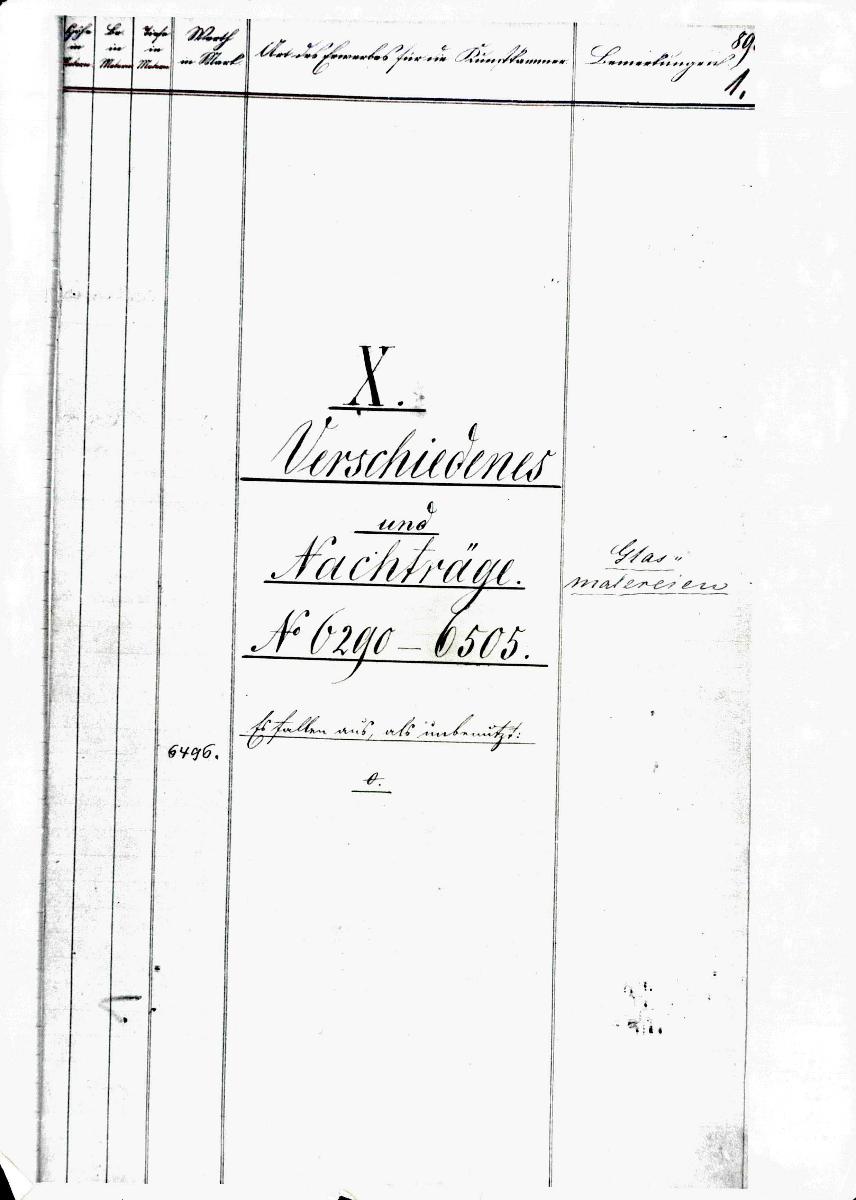 89.
Höhe in Metern
Br. in Metern
Tiefe in Metern
Werth in Mark
Art des Erwerbes für die Kunstkammer
Bemerkungen
1.
X.
Verschiedenes
und
Nachträge.
Glas-
malereien
No 6290 – 6505.
Es fallen aus, als unbenutzt:
6496.
0.